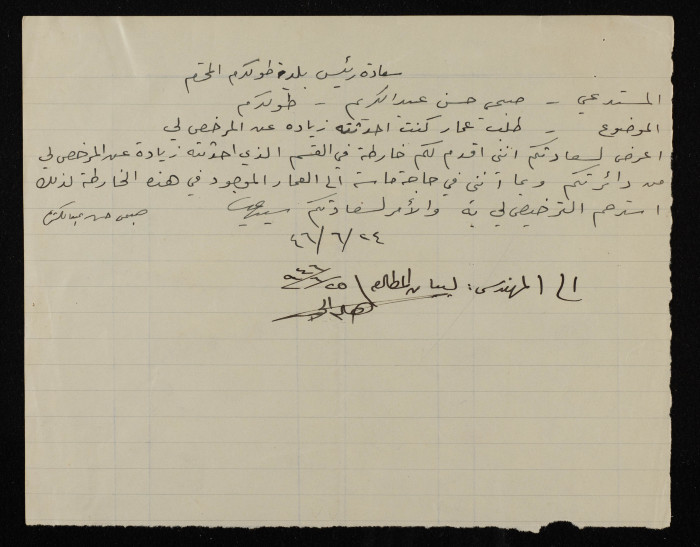 سعادة رئيس بلدية طولكرم المحترم
المستدعي - صبحي حسن عبدالكريم - طولكرم
الموضوع - طلب عمار كنت احدثته زياده عن المرخص لي
اعرض لسعادتكم انني اقدم لكم خارطة في القسم الذي احدثته زيادة عن المرخص لي
من دائرتكم وبما أنني في حاجة ماسة الى العمار الموجود في هذه الخارطة لذلك
استرحم الترخيص لي به والأمر لسعادتكم سيدي
صبحي حسن عبدالكريم
٢٤/٦/٤٦
الى المهندس: لبيان المطالعه